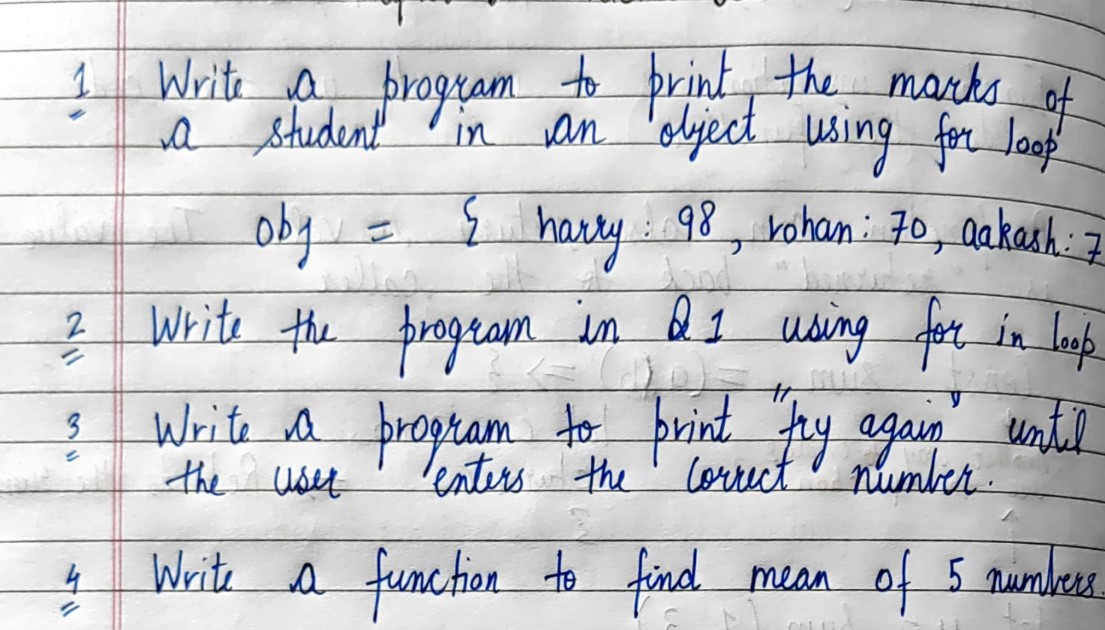 1 Write a program to print the marks of
a student in an object using for loop
obj = { harry : 98, rohan : 70, aakash : 7
2 Write the program in Q1 using for in loop
3 Write a program to print "try again" until
the user enters the correct number.
4 Write a function to find mean of 5 numbers.